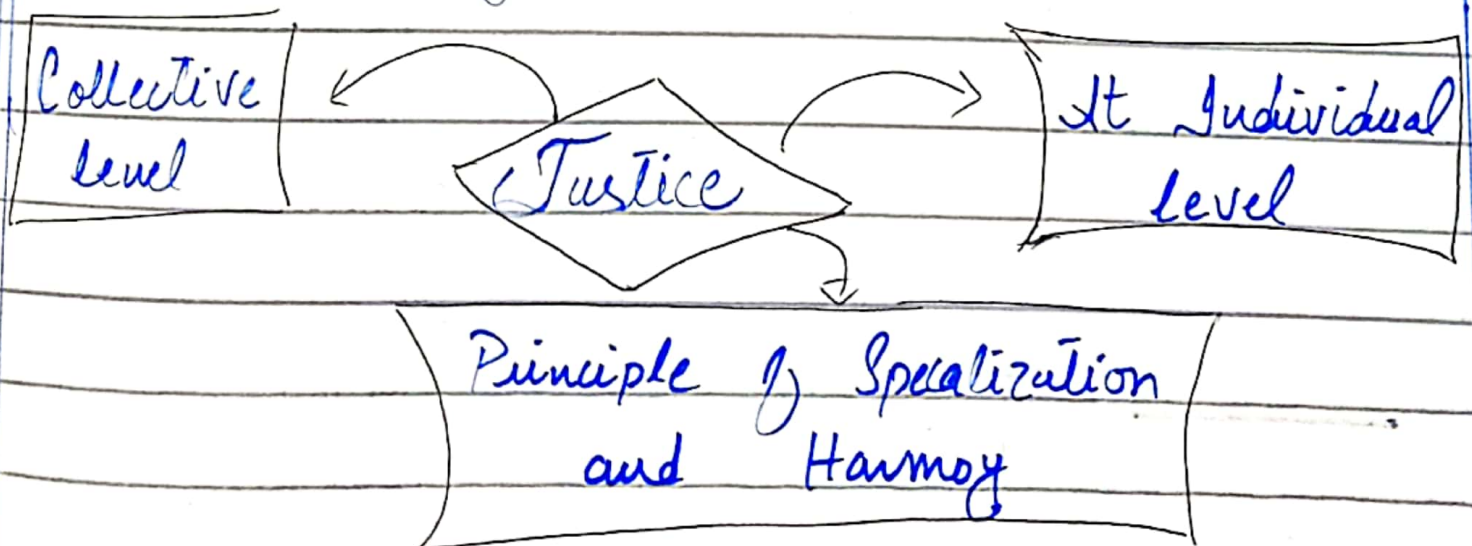 Collective
level
Justice
At Individual
level
Principle of Specalization
and Harmoy